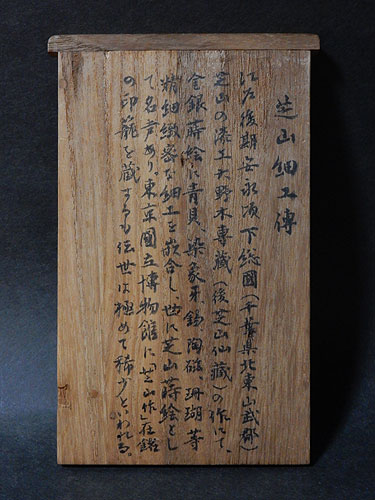 芝山細工傳
江戸後期安永頃下総國(千葉県北東山武郡)
芝山の漆工大野木専蔵(後芝山仙蔵)の作にて、
金銀蒔絵に青貝、染象牙、錫、陶磁、珊瑚等
精細緻密な細工を嵌合し、世に芝山蒔絵とし
て名声あり東京國立博物館に「芝山作」在銘
の印籠を蔵するも伝世は極めて稀少といわれる。